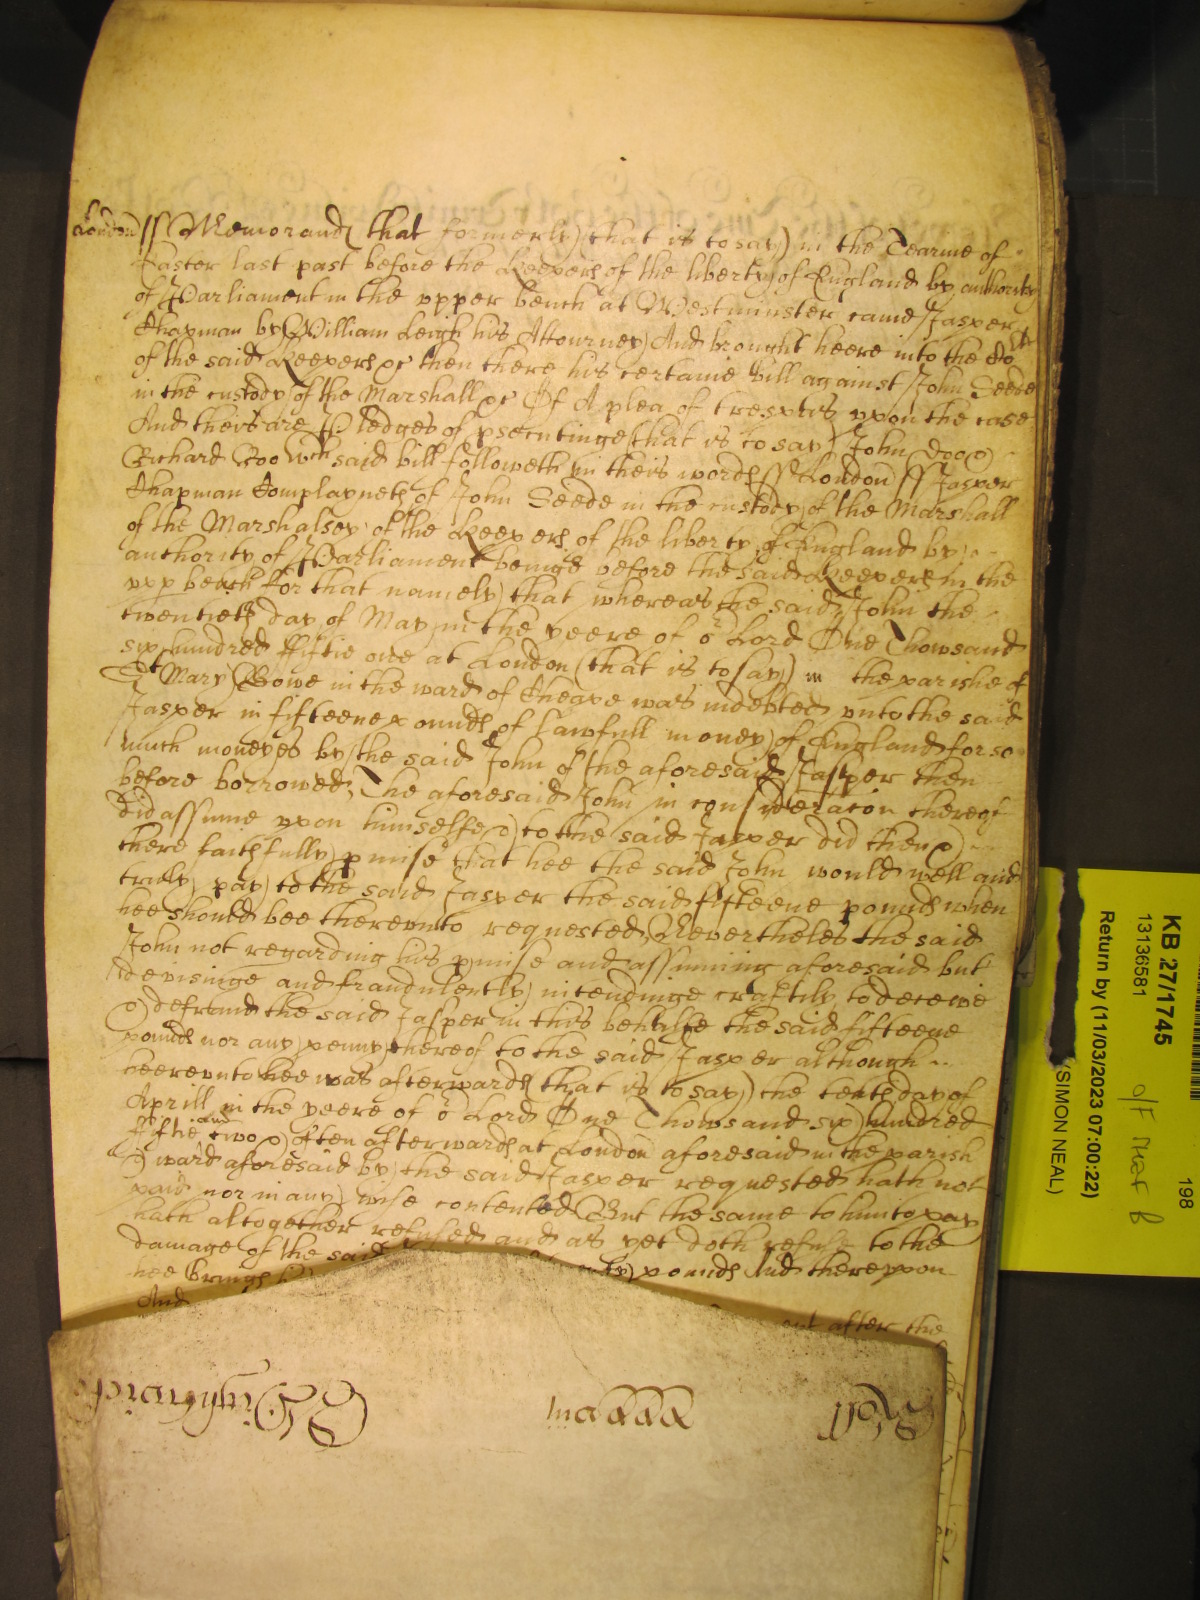 London ss Memorand that formerly (that is to say) in the Tearme of
Easter last past before the Keepers of the liberty of England by authority
of Parliament in the vpper bench at Westminster came Jasper
Chapman by William Leigh his Attourney And brought heere into the Cort
of the said Keepers &c then there his certaine bill against John Seede
in the custody of the Marshall &c Of A plea of trespas vpon the case
And theis are Pledges of psecutinge (that is to say) John Doo &
Richard Roo Wch said bill followeth in theis words ss London ss Jasper
Chapman Complayneth of John Seede in the custody of the Marshall
of the Marshalsey of the Keepers of the liberty of England by
authority of Parliament beinge before the said Keepers in the
vpp bench For that namely that whereas the said John the
twentieth day of May in the yeere of or Lord One Thowsand
six hundred fiftie one at London (that is to say) in the parishe of
St Mary Bowe in the ward of Cheape was indebted vnto the said
Jasper in fifteene pounds of lawfull money of England for so
much moneyes by the said John of the aforesaid Jasper then
before borrowed, The aforesaid John in consideracon thereof
did assume vpon himselfe & to the said Jasper did then &
there faithfully pmise that hee the said John would well and
truly pay to the said Jasper the said fifteene pounds when
hee should bee therevnto requested Nevertheles the said
John not regarding his pmise and assuming aforesaid but
devisinge and fraudulently intendinge craftily to deceive
& defraud the said Jasper in this behalfe the said fifteene
pounds nor any penny thereof to the said Jasper although
heerevnto hee was afterwards (that is to say) the tenth day of
Aprill in the yeere of or Lord One Thowsand six hundred
fiftie two and & often afterwards at London aforesaid in the parish
& ward aforesaid by the said Jasper requested hath not
paid nor in any wise contented But the same to him to pay
hath altogether refused and as yet doth refuse to the
damage of the said pounds And therevpon
hee brings
And after the
Roll
Wightwicke
KB 27/1745
13136581
198
Return by (11/03/2023 07:00:22)
(SIMON NEAL)